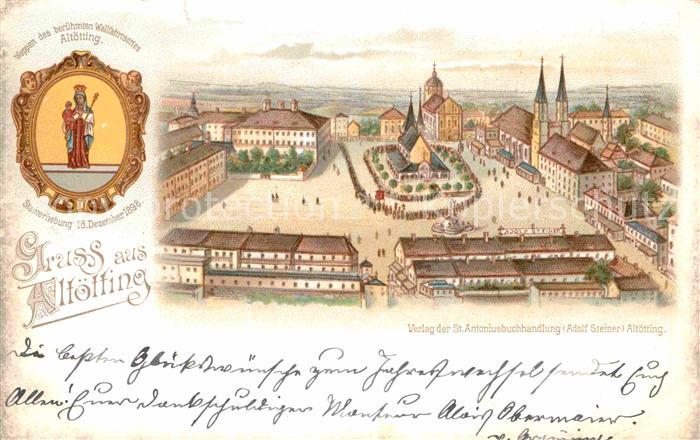 Wappen des berühmten Wallfahrtsortes
Altötting.
Stadterhebung 18. Dezember 1898.
Gruss aus
Altötting
ADOLF STEINER
Verlag der St. Antoniusbuchhandlung (Adolf Steiner) Altötting.
Die besten Glückswünsche zum Jahreswechsel sendet Euch
Allen! Euer dankschuldiger Monteur Alois Obermaier.